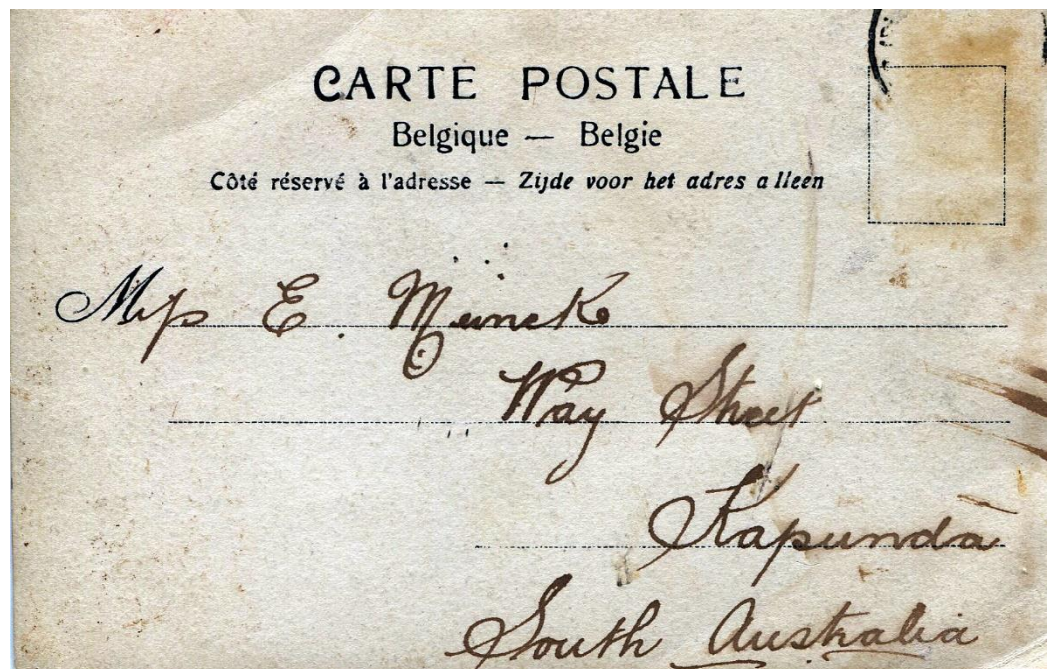 CARTE POSTALE
Belgique — Belgie
Côté réservé à l'adresse — Zijde voor het adres alleen
Miss E. Meinck
Way Street
Kapunda
South Australia